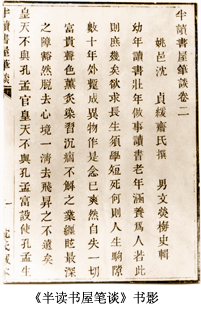 半讀書屋筆談卷二
姚邑沈 貞綬齋氏撰 男文熒梅史輯
幼年讀書壯年做事讀書老年涵養爲人若此
則庶幾矣欲求長生須學短死何則人生駒隙
數十年外盡成異物作是念已爽然自失一切
富貴聲色薰炙染習沉痼不解之業纏眩最深
之障豁然脫去心境一淸去飛昇之不遠矣
皇天不與孔孟官皇天不與孔孟富設使孔孟生
《半读书屋笔谈》书影